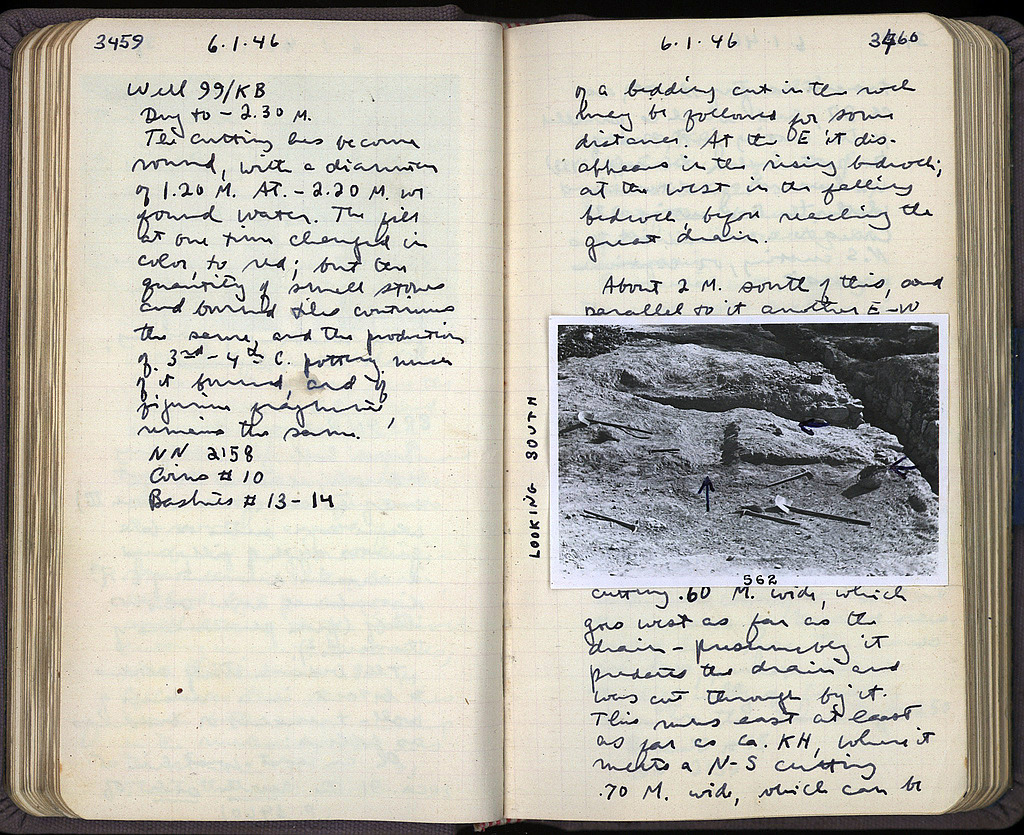 3459
6.1.46
Well 99/KB
Dug to - 2.30 M.
The cutting has become
round, with a diameter
of 1.20 M. At - 2.20 M. we
found water. The fill
at one time changed in
color, to red; but the
quantity of small stones
and burned tiles continues
the same, and the production
of 3rd - 4th C. pottery, much
of it burned, and of
figurine fragments,
remains the same.
NN 2158
Coins # 10
Baskets # 13-14
6.1.46
3460
of a bedding cut in the rock
may be followed for some
distance. At the E it dis-
appears in the rising bedrock;
at the west in the falling
bedrock before reaching the
great drain.
About 2 M. south of this, and
parallel to it another E-W
LOOKING SOUTH
562
cutting .60 M. wide, which
goes west as far as the
drain - presumably it
predates the drain and
was cut through by it.
This runs east at least
as far as ca. KH, where it
meets a N-S cutting
.70 M. wide, which can be